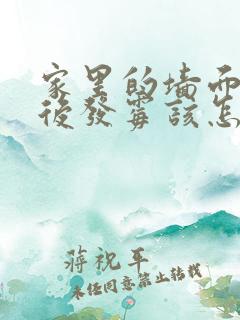 家里的墙面
後發霉該怎
蔣祝平
未经同意禁止转载